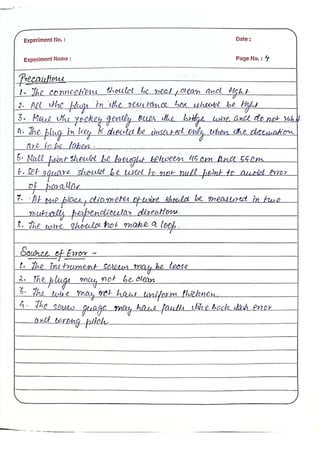 Experiment No. :
Date :
Experiment Name :
Page No. : 4
Precautions
1. The connections should be neat, clean and tight
2. All the plugs in the resistance box should be tight
3. Move the jockey gently over the bridge wire and do not rub
4. The plug in key K should be inserted only when the observation
are to be taken.
5. Null point should be brought between 45 cm and 55 cm
6. Set square should be used to not null point to avoid error
of parallax
7. At one place, diameter of wire should be measured in two
mutually perpendicular directions
8. The wire should not make a loop.
Source of Error -
1. The instrument screws may be loose
2. The plugs may not be clean
3. The wire may not have uniform thicknes
4. The screw guage may have faults like back lash error
and wrong pitch